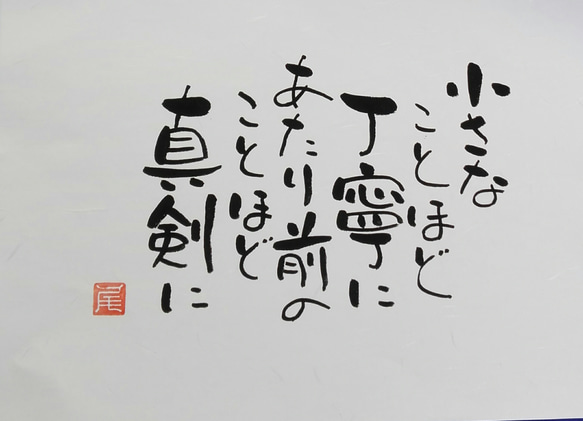 小さな
ことほど
丁寧に
あたり前の
ことほど
真剣に
尾